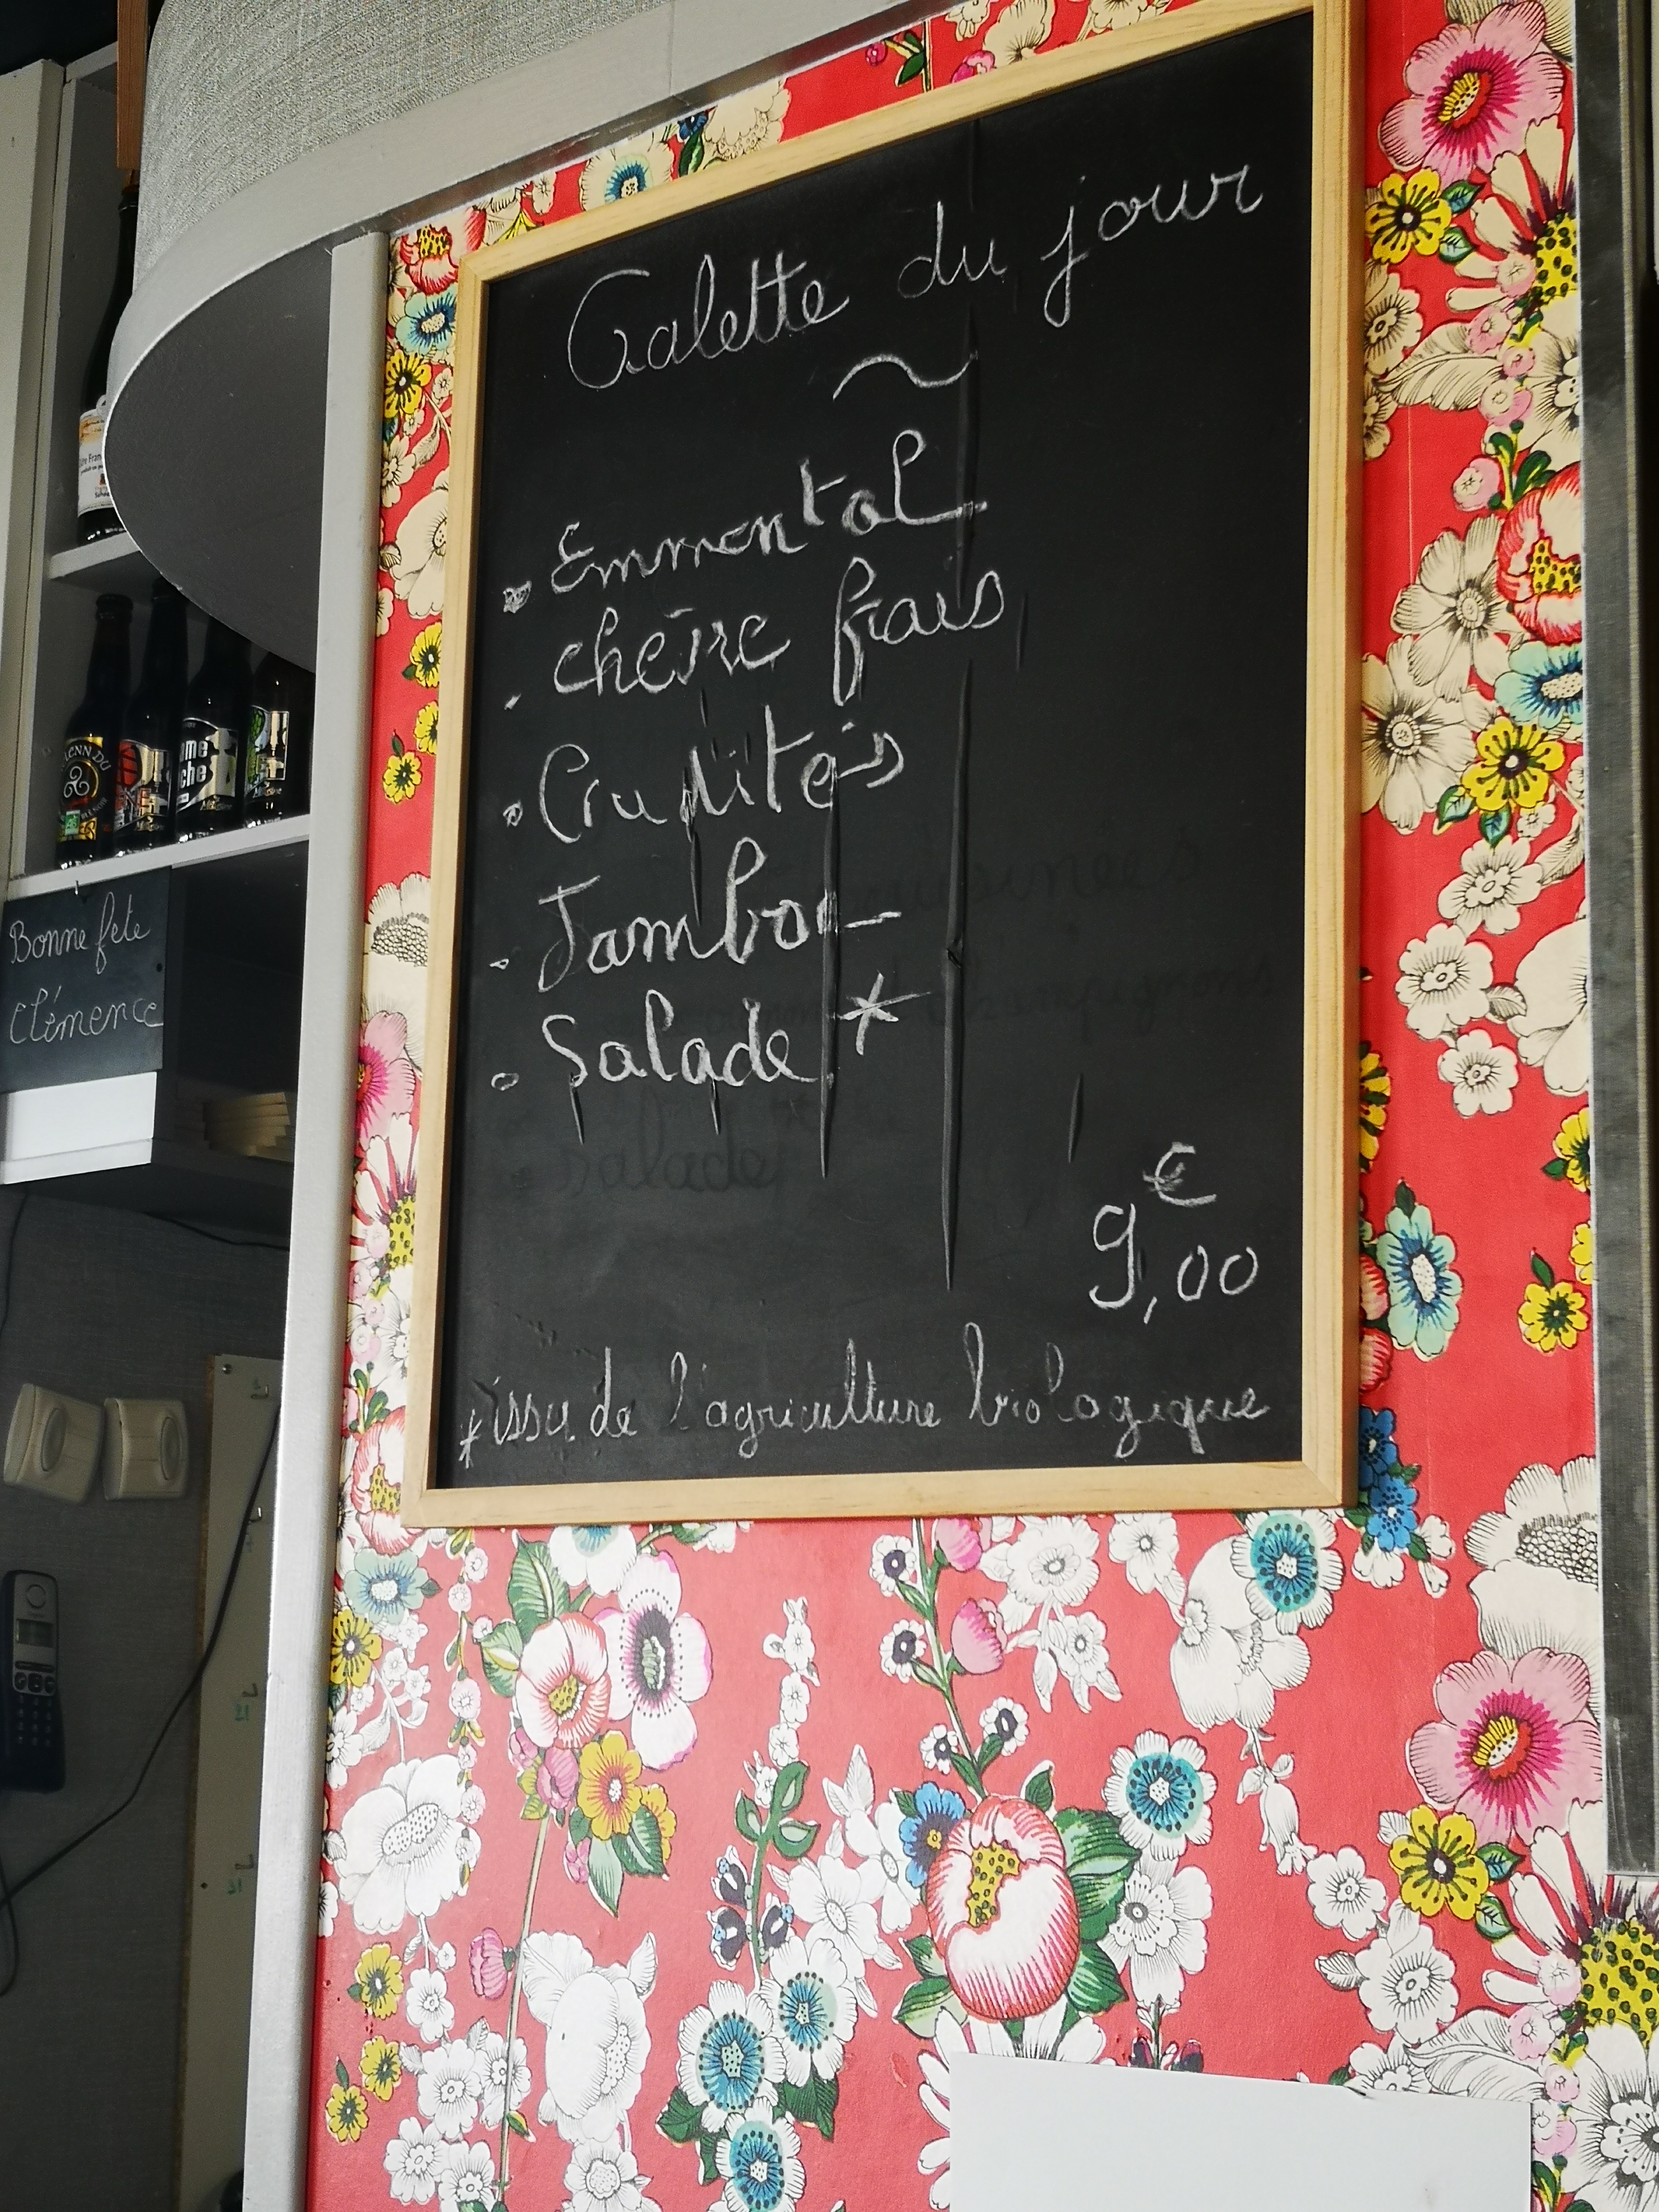 Galette du jour
~
• Emmental
• chèvre frais
• Crudités
• Jambon
• Salade *
€
9,00
* issu de l'agriculture biologique
Bonne fete
Clémence
salade
champignons